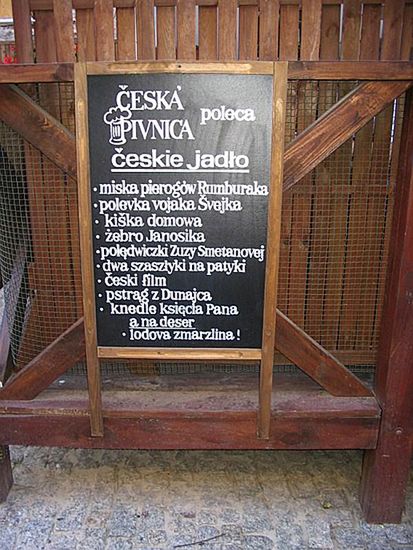 ČESKÁ
PIVNICA
poleca
českie jadło
• miska pierogów Rumburaka
• polevka vojaka Švejka
• kiška domowa
• żebro Janosika
• polędwiczki Zuzy Smetanovej
• dwa szaszłyki na patyki
• česki film
• pstrąg z Dunajca
• knedle księcia Pana
a na deser
• lodova zmarzlina !